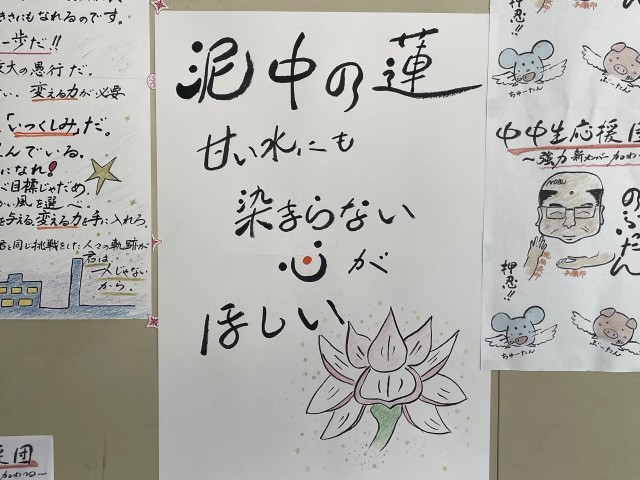 きさにもなれるのです。
一歩だ!!
大の愚行だ。
い、変える力が必要
「いつくしみ」だ。
んでいる。
になれ!
べ目標じゃだめ。
かい風を選べ。
を与える、変える力を手に入れろ。
君と同じ挑戦をした人々の軌跡が
君は
一人じゃない
から。
泥中の蓮
甘い水にも
染まらない
心が
ほしい
押忍!!
ちゅーたん
ぶーたん
中中生応援団
〜強力新メンバー加わ
NOBU
のぶたん
押忍!!
ちゅーたん
ぶーたん
援団
加わる〜